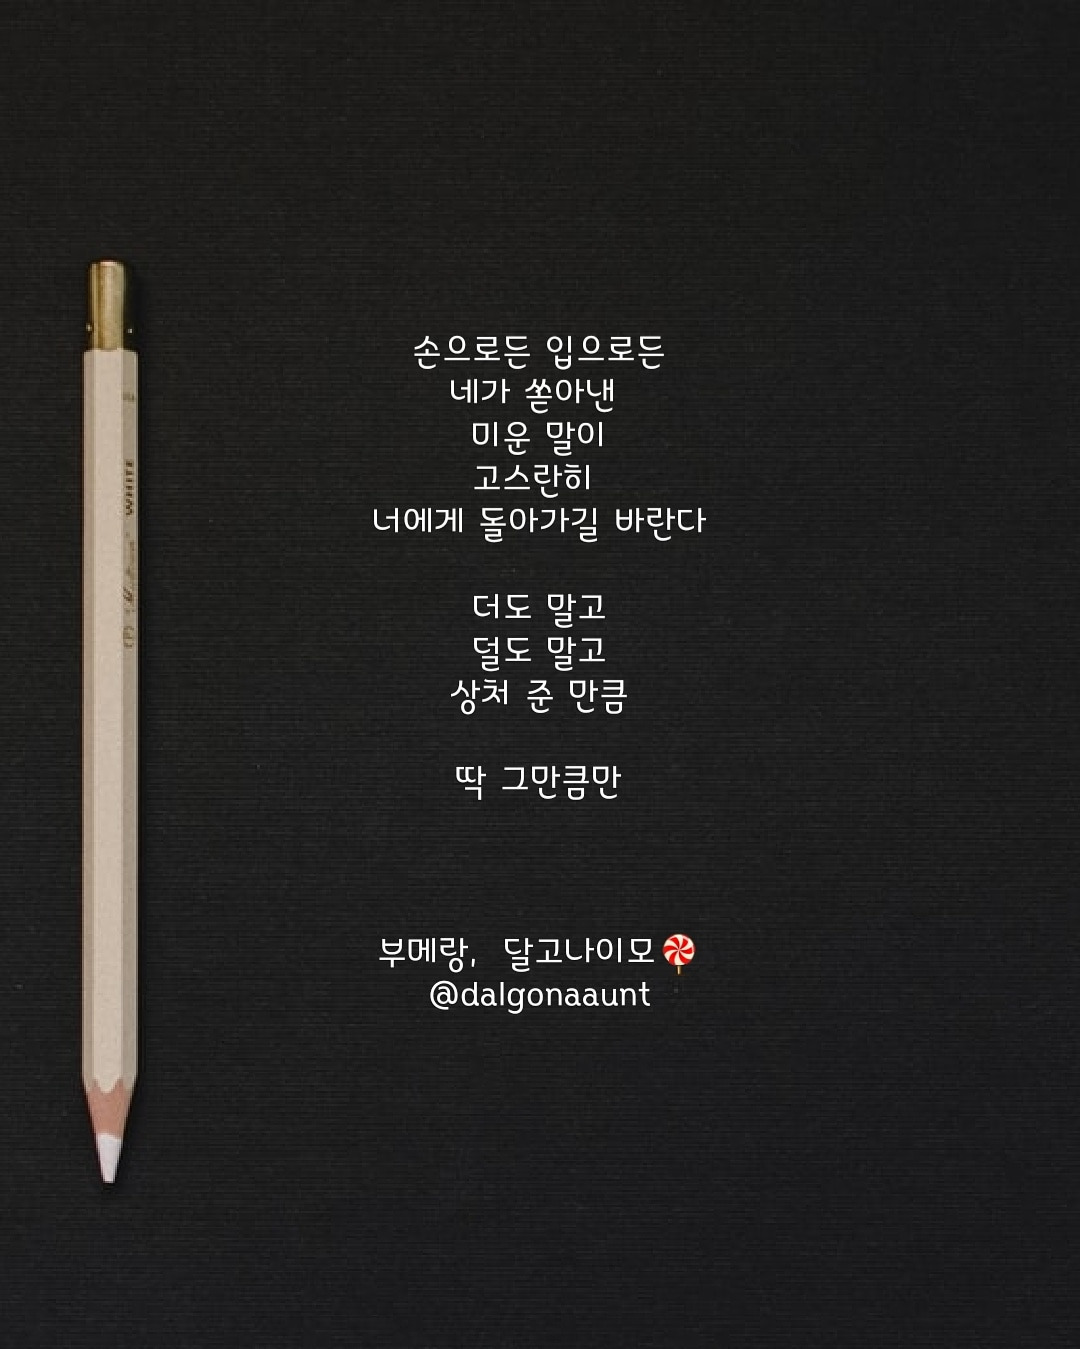 손으로든 입으로든
네가 쏟아낸
미운 말이
고스란히
너에게 돌아가길 바란다
더도 말고
덜도 말고
상처 준 만큼
딱 그만큼만
부메랑, 달고나이모🍭
@dalgonaaunt
WHITE